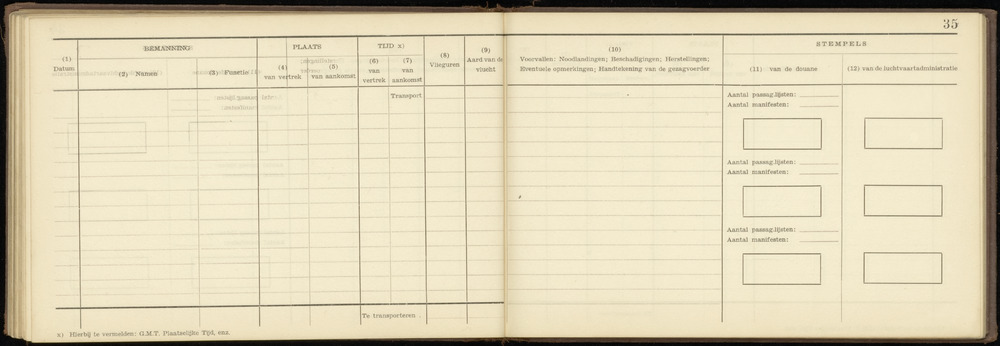 35
BEMANNING
PLAATS
TIJD x)
STEMPELS
(1)
Datum
(2) Namen
(3) Functie
(4)
van vertrek
(5)
van aankomst
(6)
van
vertrek
(7)
van
aankomst
(8)
Vlieguren
(9)
Aard van de
vlucht
(10)
Voorvallen: Noodlandingen; Beschadigingen; Herstellingen;
Eventuele opmerkingen; Handtekening van de gezagvoerder
(11) van de douane
(12) van de luchtvaartadministratie
Transport
Aantal passag.lijsten:
Aantal manifesten:
Aantal passag.lijsten:
Aantal manifesten:
Aantal passag.lijsten:
Aantal manifesten:
Te transporteren .
x) Hierbij te vermelden: G.M.T. Plaatselijke Tijd, enz.